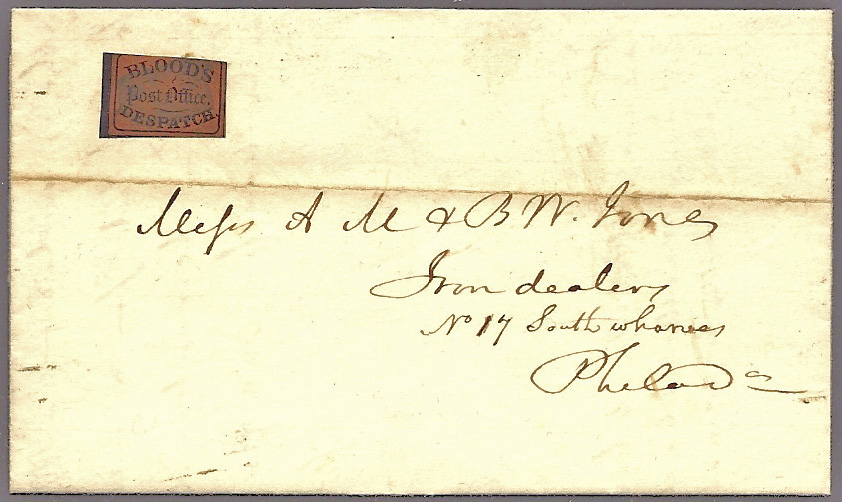 BLOOD'S
Post Office
DESPATCH.
Mess A M & B W. Jones
Iron dealers
No 17 South wharves
Philada